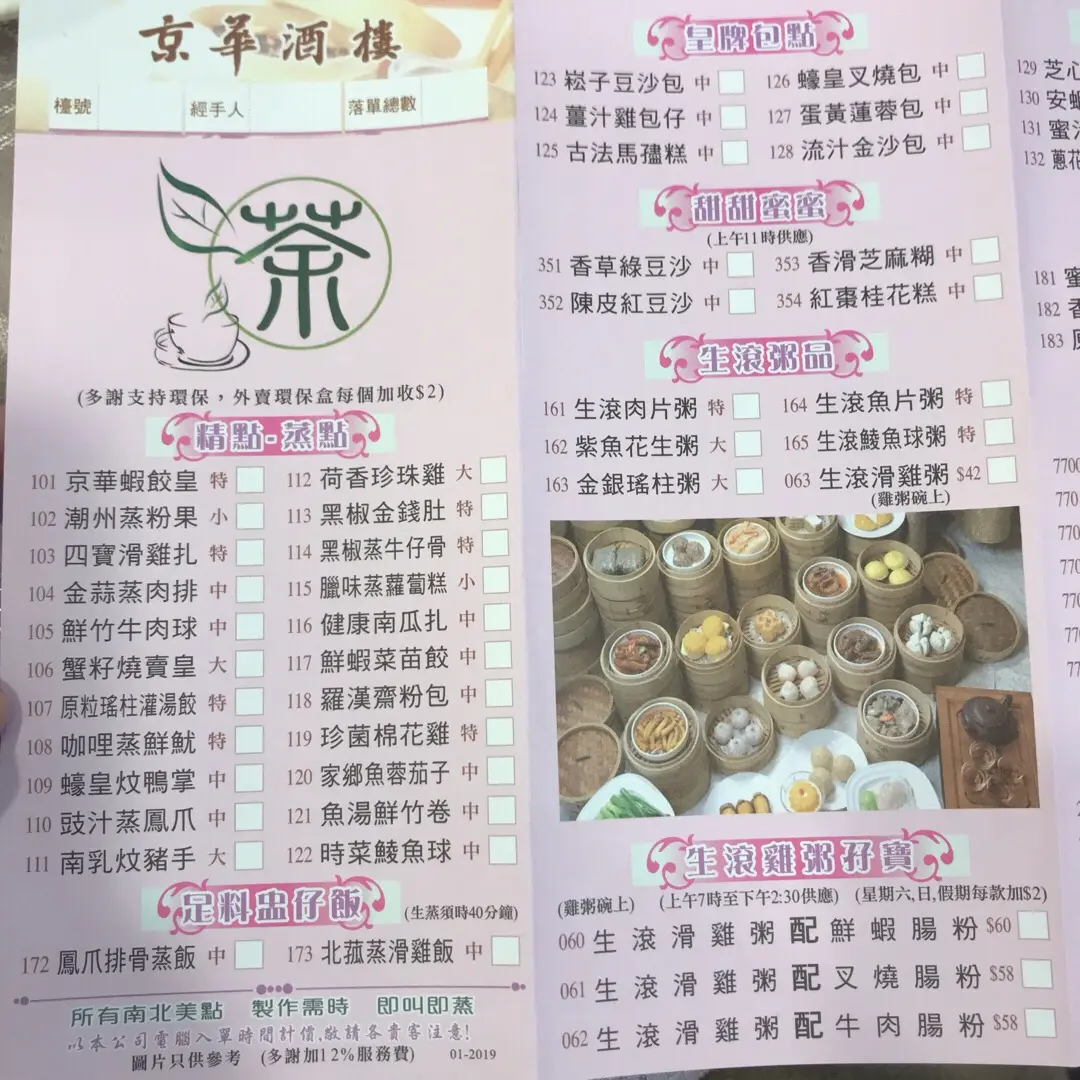 京華酒樓
檯號 經手人 落單總數
茶
(多謝支持環保，外賣環保盒每個加收$2)
精點-蒸點
101 京華蝦餃皇 特
102 潮州蒸粉果 小
103 四寶滑雞扎 特
104 金蒜蒸肉排 中
105 鮮竹牛肉球 中
106 蟹籽燒賣皇 大
107 原粒瑤柱灌湯餃 特
108 咖哩蒸鮮魷 特
109 蠔皇炆鴨掌 中
110 豉汁蒸鳳爪 中
111 南乳炆豬手 大
112 荷香珍珠雞 大
113 黑椒金錢肚 特
114 黑椒蒸牛仔骨 特
115 臘味蒸蘿蔔糕 小
116 健康南瓜扎 中
117 鮮蝦菜苗餃 中
118 羅漢齋粉包 中
119 珍菌棉花雞 特
120 家鄉魚蓉茄子 中
121 魚湯鮮竹卷 中
122 時菜鯪魚球 中
足料盅仔飯
(生蒸須時40分鐘)
172 鳳爪排骨蒸飯 中
173 北菰蒸滑雞飯 中
所有南北美點 製作需時 即叫即蒸
以本公司電腦入單時間計價,敬請各貴客注意!
圖片只供參考 (多謝加12%服務費) 01-2019
皇牌包點
123 崧子豆沙包 中
124 薑汁雞包仔 中
125 古法馬孻糕 中
126 蠔皇叉燒包 中
127 蛋黃蓮蓉包 中
128 流汁金沙包 中
甜甜蜜蜜
(上午11時供應)
351 香草綠豆沙 中
352 陳皮紅豆沙 中
353 香滑芝麻糊 中
354 紅棗桂花糕 中
生滾粥品
161 生滾肉片粥 特
162 紫魚花生粥 大
163 金銀瑤柱粥 大
164 生滾魚片粥 特
165 生滾鯪魚球粥 特
063 生滾滑雞粥 $42
(雞粥碗上)
生滾雞粥孖寶
(雞粥碗上) (上午7時至下午2:30供應) (星期六,日,假期每款加$2)
060 生滾滑雞粥配鮮蝦腸粉 $60
061 生滾滑雞粥配叉燒腸粉 $58
062 生滾滑雞粥配牛肉腸粉 $58
129 芝心
130 安
131 蜜
132 蔥花
181 蜜
182 香
183
7700
770
770
770
770
77
77